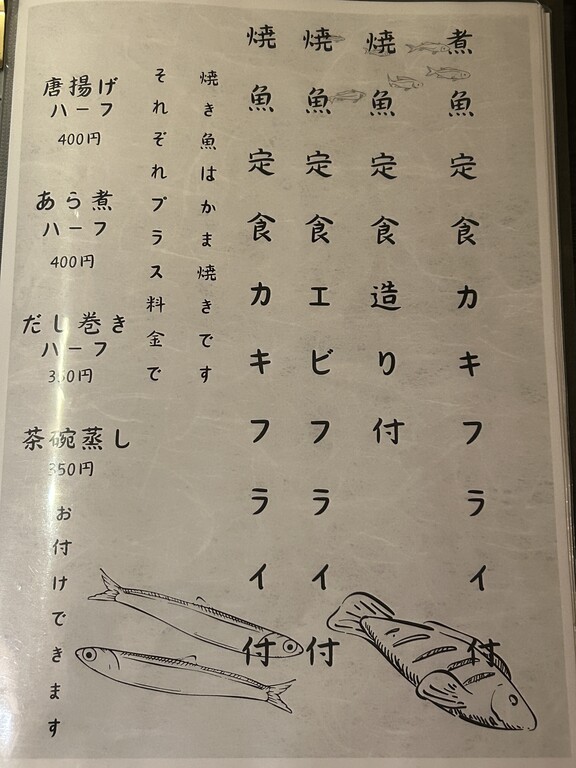 煮魚定食カキフライ付
焼魚定食造り付
焼魚定食エビフライ付
焼魚定食カキフライ付
焼き魚はかま焼きです
それぞれプラス料金で
唐揚げ
ハーフ
400円
あら煮
ハーフ
400円
だし巻き
ハーフ
350円
茶碗蒸し
350円
お付けできます